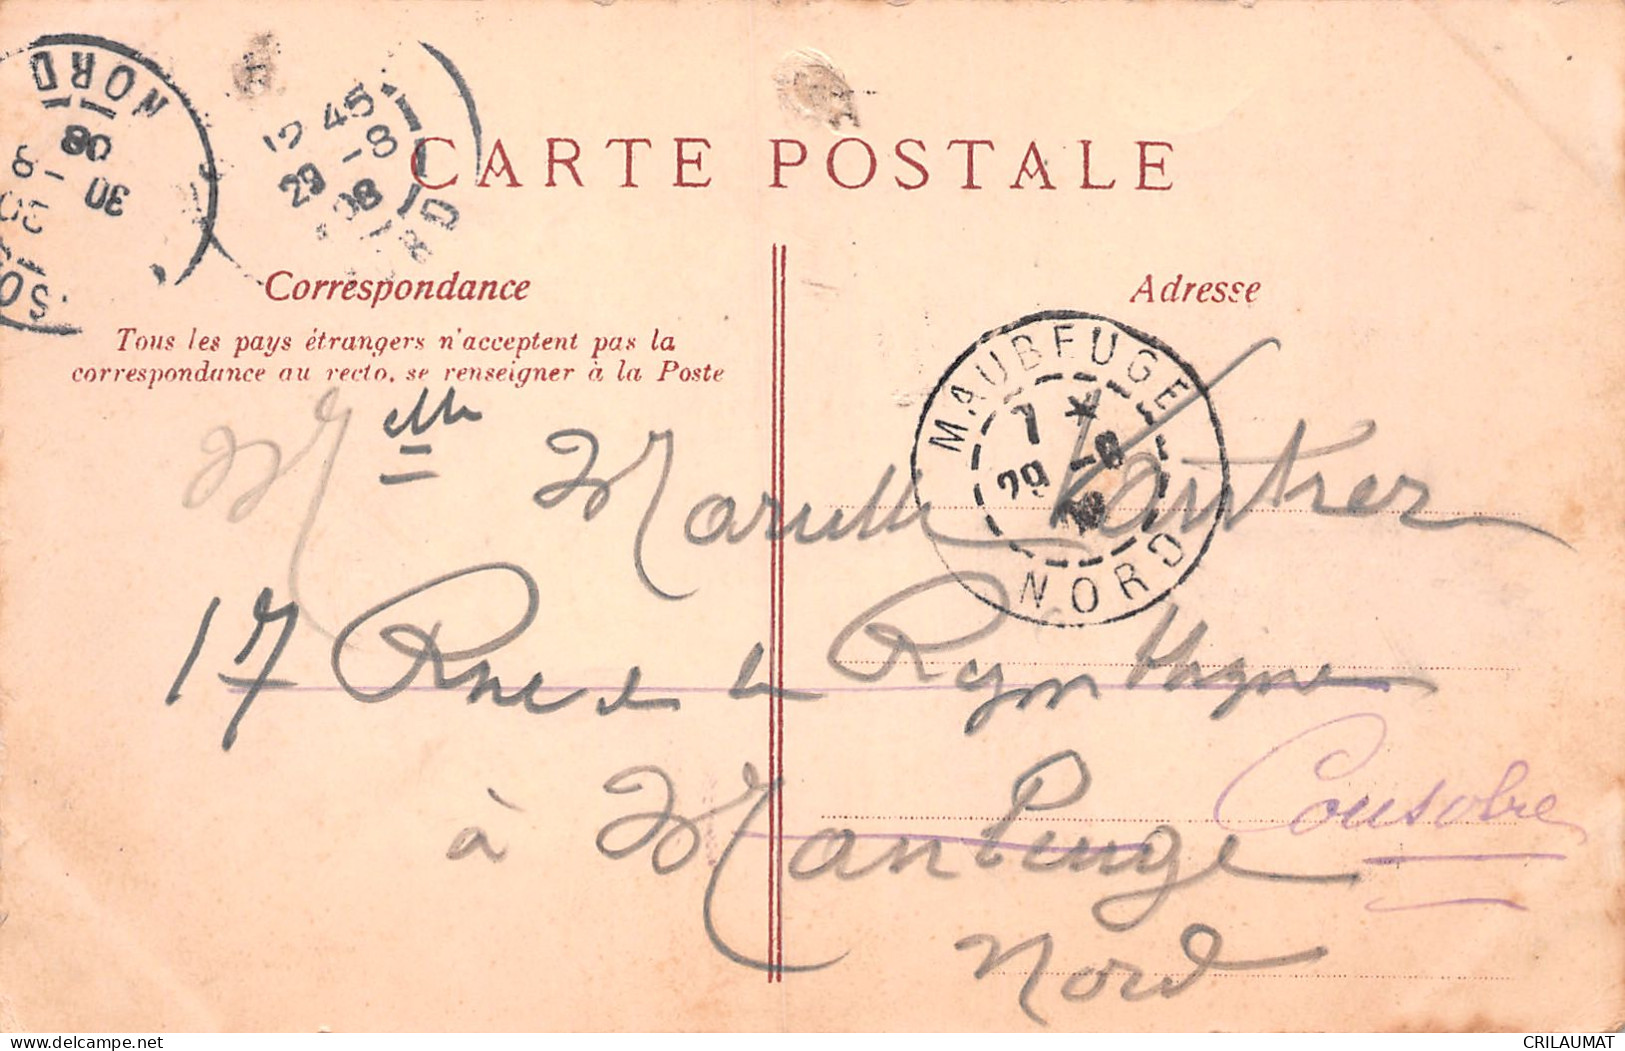 NORD
08
30 8
SO
12 45
29 -8
08
RD
CARTE POSTALE
Correspondance
Adresse
Tous les pays étrangers n'acceptent pas la
correspondance au recto, se renseigner à la Poste
MAUBEUGE
7 *
29 -8
08
NORD
Melle Marcelle
17 Rue de la
à Maubeuge
Cousolre
Nord
delcampe.net
CRILAUMAT